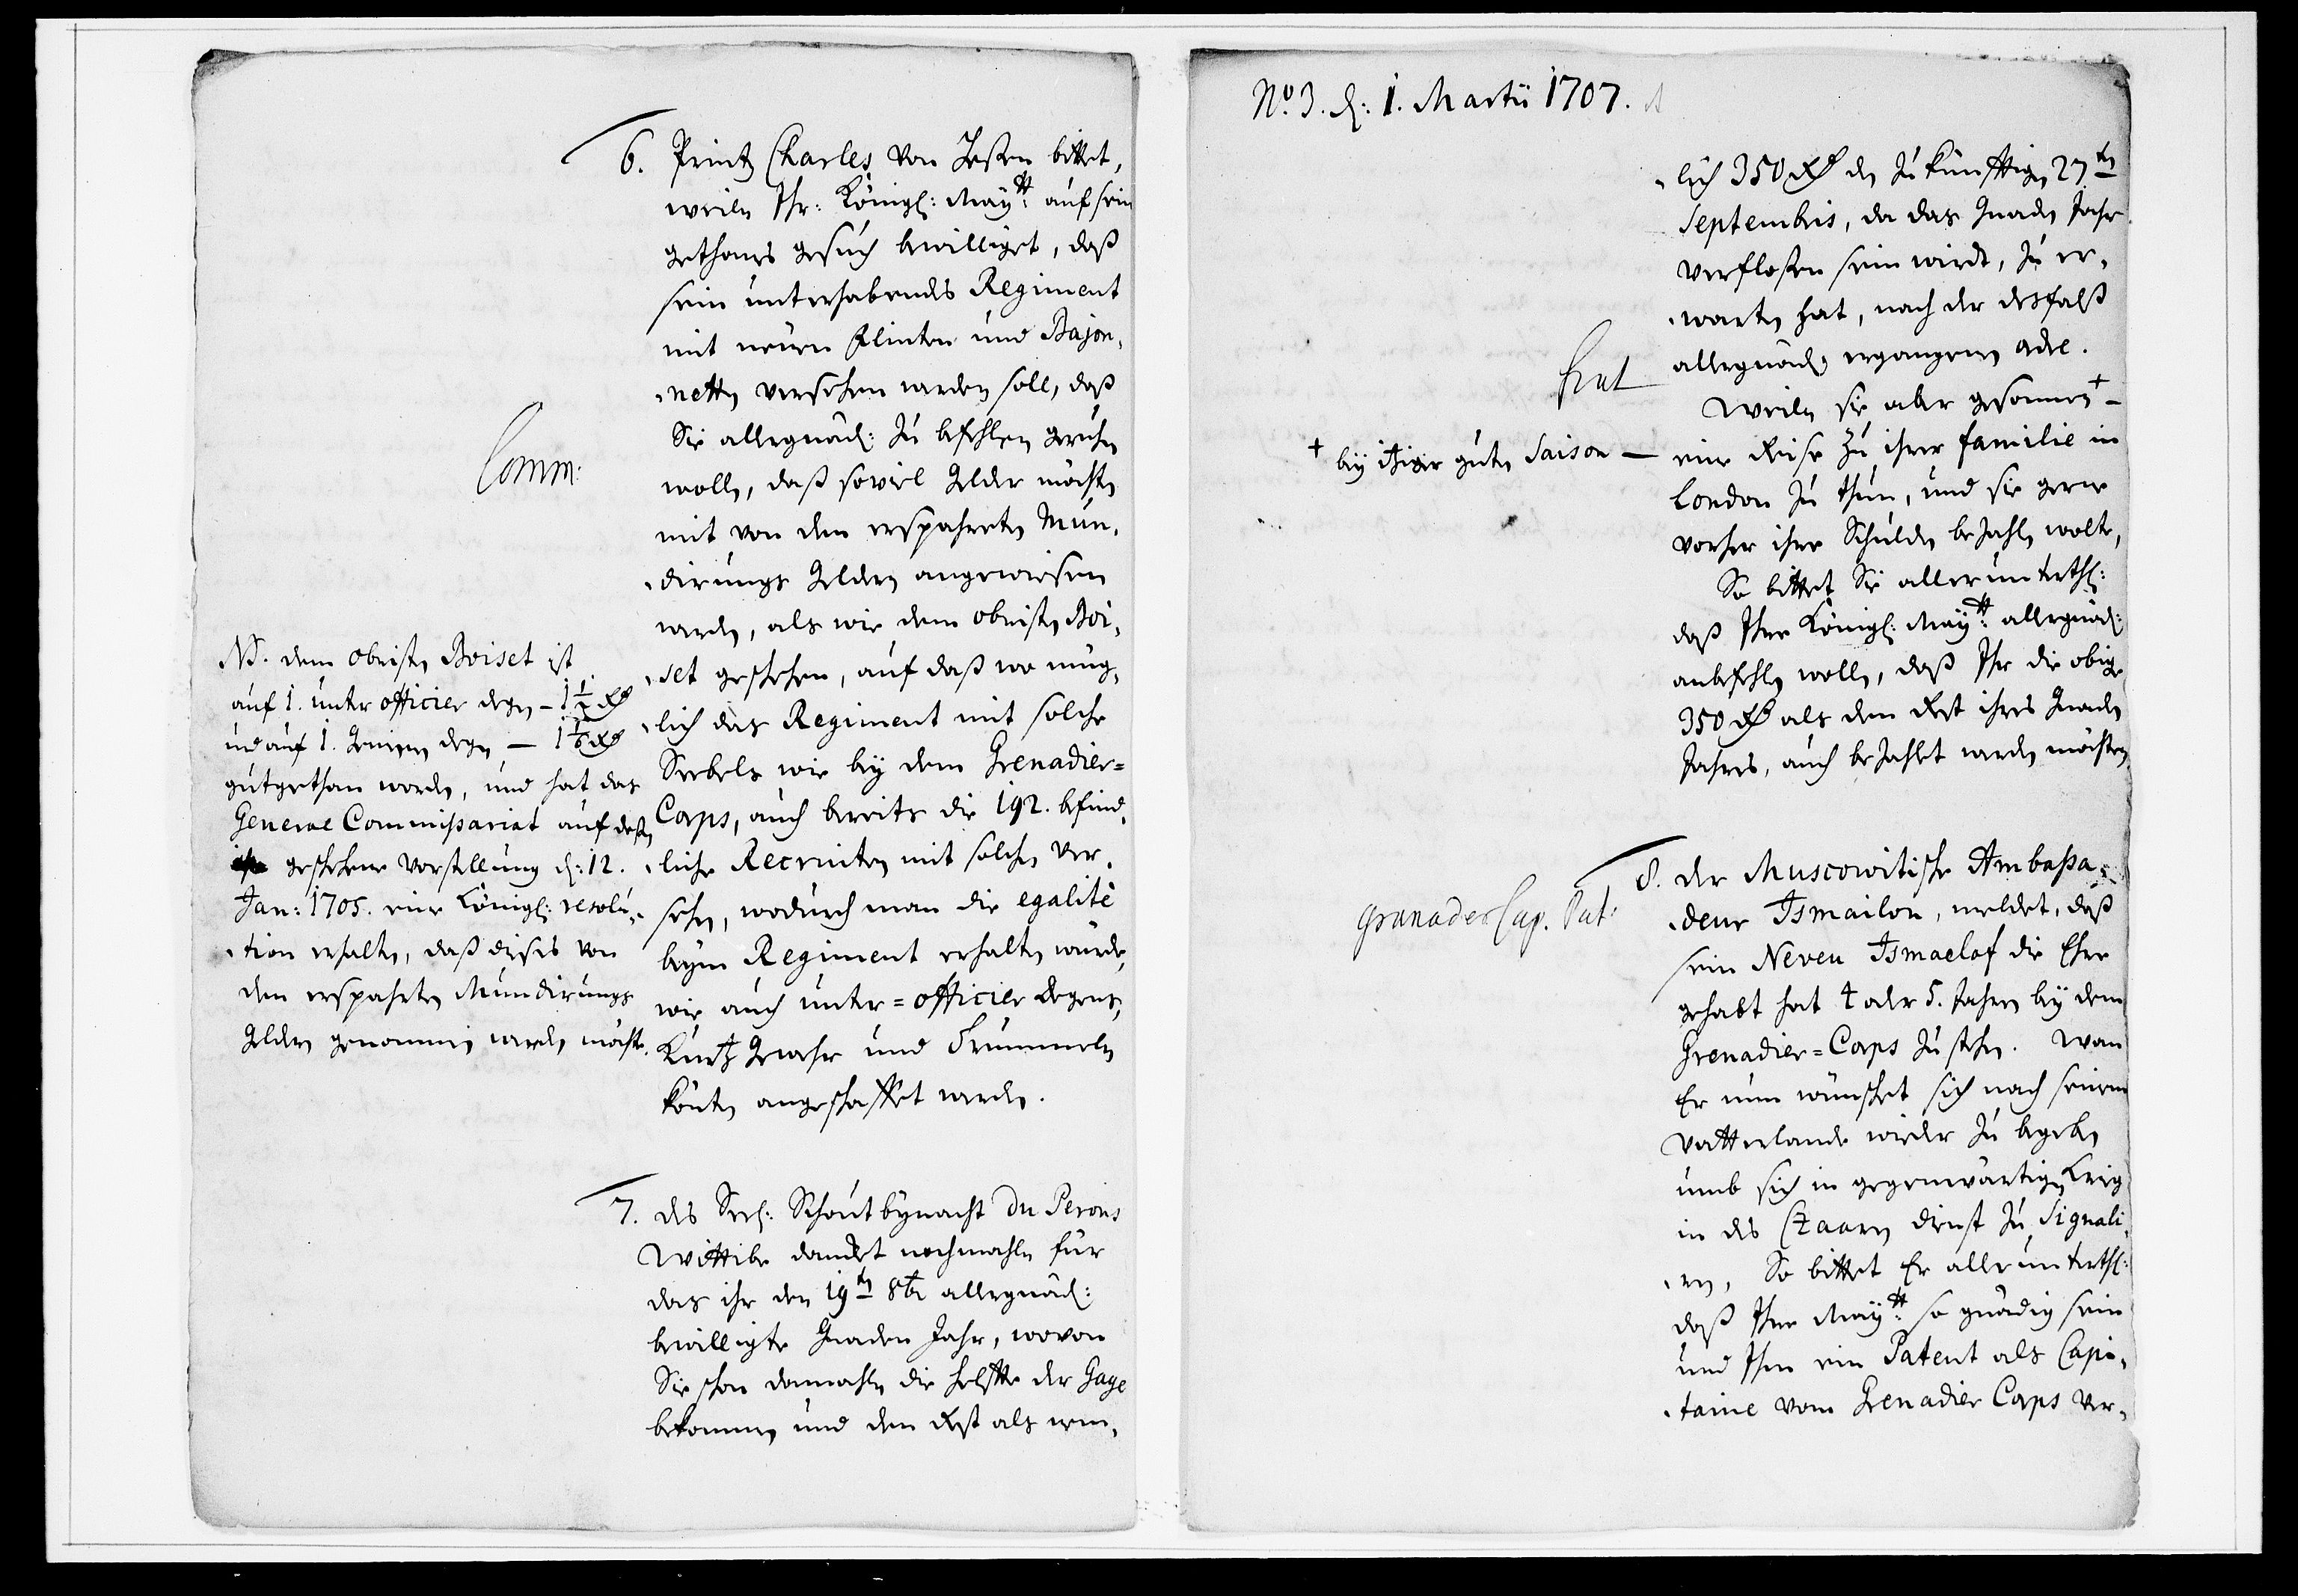 6. Printz Charles von Heßen bittet,
weiln Ihr: Königl: Mayᵗᵗ: auf sein
gethanes gesuch bewilliget, daß
sein unterhabendes Regiment
mit neuen Flinten und Bajon,
,netten versehen werden soll, daß
Sie allergnäd: zu befehlen geruhen
wollen, daß soviel Gelder möchten
mit von den erspahreten Mun,
,dirungs Geldern angewiesen
werden, als wie dem obristen Boi,
,set geschehen, auf daß wo müg,
,lich das Regiment mit solche
Seebels wie bey dem Grenadier=
Corps, auch bereits die 192. befind,
,liche Recruiten mit solchen ver,
sehen, wodurch man die egalité
beym Regiment erhalten würde,
wie auch unter=officier degens,
Kurtz Gewehr und Trummeln
könten angeschaffet werden.
Comm:
NB. dem obristen Boiset ist
auf 1. unter officier degen – 1½ Rd
und auf 1. Gemeinen degen – 1⅙ Rd
gutgethan worden, und hat das
General Commißariat auf deßen
geschehene Vorstellung d: 12.
Jan: 1705. eine Königl: resolu,
,tion erhalten, daß dieses von
den erspahrten Mundirungs
Geldern genommen werden möchte.
7. des Seel: Schoutbynacht du Perons
Wittibe dancket nochmahln für
das ihr den 19ᵗᵉⁿ 8br allergnäd:
bewilligte Gnaden Jahr, wovon
Sie schon damahln die helffte der Gage
bekommen und den Rest als nem,
No. 3. d: 1. Martii 1707.
,lich 350 Rd den zukünfftigen 27ᵗᵉⁿ
Septembris, da das Gnaden Jahr
verfloßen sein wirdt, zu er,
,warten hat, nach der desfalß
allergnäd: ergangenen ordre.
Weiln sie aber gesonnen +
+ bey itziger guten Saison —
eine Reise zu ihrer familie in
London zu thun, und sie gerne
vorher ihre Schulden bezahlen wolte,
So bittet Sie allerunterth:
daß Ihre Königl: Mayᵗᵗ: allergnäd:
anbefehlen wollen, daß Ihr die obige
350 Rd als den Rest ihres Gnaden
Jahres, auch bezahlt werden möchten
8. der Muscowitische Ambaßa,
,deur Ismailow, meldet, daß
sein Neveu Ismaelof die Ehre
gehabt hat 4 oder 5. Jahren bey dem
Grenadier=Corps zu stehen. Wan
Er nun wünschet sich nach seinem
Vatterlande wieder zu begeben
umb sich in gegenwärtigen Krieg
in des Czaaren dienst zu signali,
,ren, So bittet Er allerunterth:
daß Ihre Mayᵗᵗ: so gnädig sein
und Ihm ein Patent als Capi,
,taine vom Grenadier Corps ver,
Granader Cap. Pat: